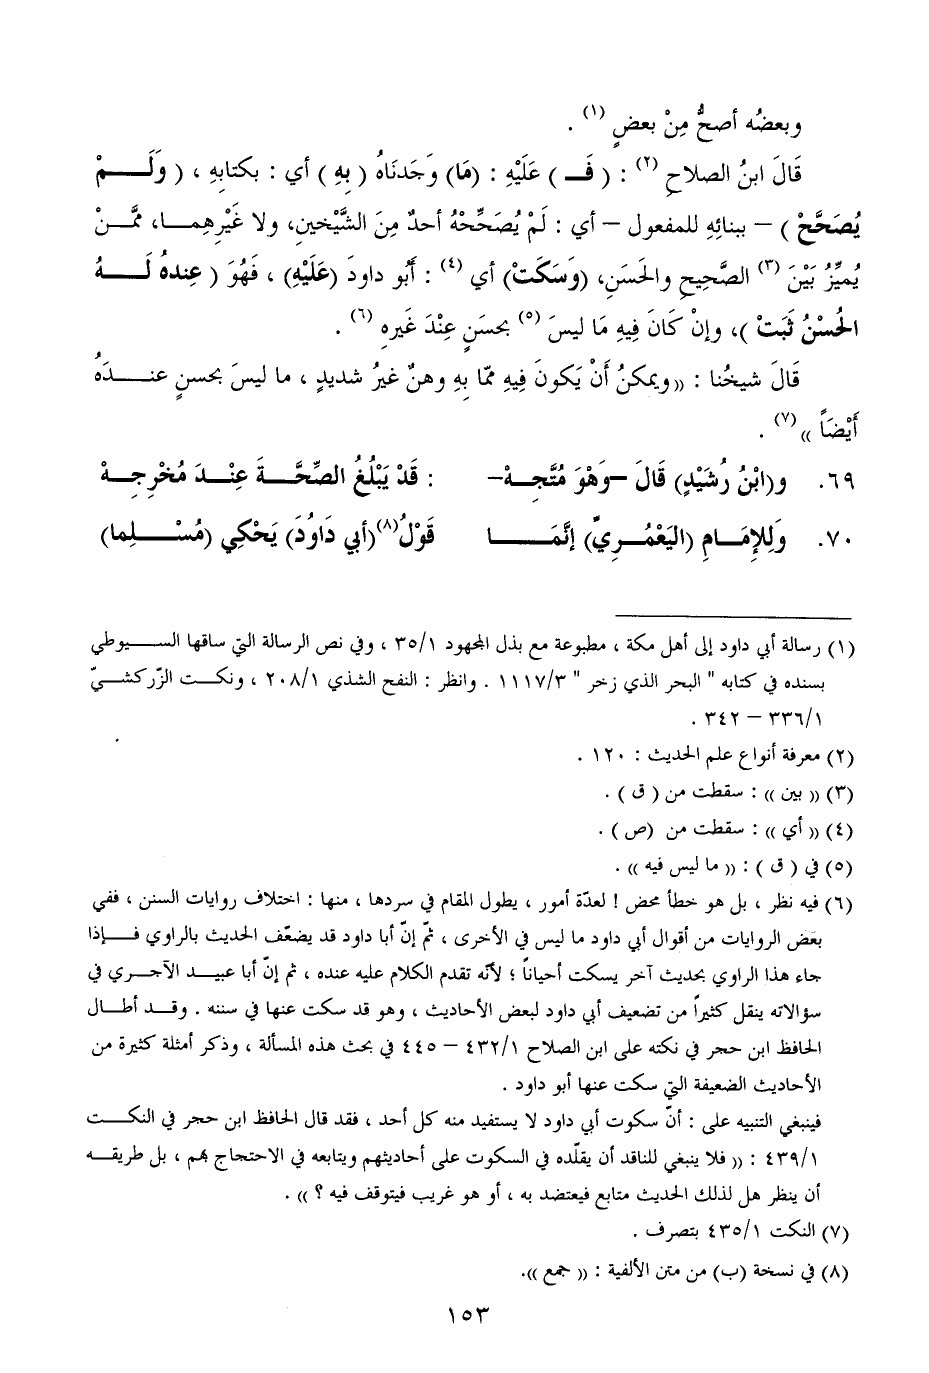 وبعضُه أصحُّ مِنْ بعضٍ (١) .
قَالَ ابنُ الصلاحِ (٢) : ( فَـ ) عَلَيْهِ : (مَا) وَجَدنَاهُ ( بِهِ ) أي : بكتابِهِ ، ( وَلَـــمْ
يُصَحَّحْ ) – ببنائِهِ للمفعول – أي : لَمْ يُصَحِّحْهُ أحدٌ مِنَ الشَّيْخينِ، ولا غَيْرِهِمــا، مِمَّــنْ
يُمَيِّزُ بَيْنَ (٣) الصَّحِيحِ والحَسَنِ، (وَسَكَتْ) أي (٤) : أَبُو داودَ (عَلَيْهِ) ، فَهُوَ ( عِندهُ لَـــهُ
الحُسْنُ ثَبَتْ )، وإنْ كَانَ فِيهِ مَا ليسَ (٥) بحسَنٍ عِنْدَ غَيرِهِ (٦) .
قَالَ شيخُنا : (( ويمكنُ أَنْ يَكونَ فِيهِ مِمّا بِهِ وهنٌ غيرُ شديدٍ ، ما ليسَ بحسنٍ عنــــدَهُ
أَيْضَاً )) (٧) .
٦٩. و(ابْنُ رُشَيْدٍ) قَالَ –وَهْوَ مُتَّجِهْـ– : قَدْ يَبْلُغُ الصِّحَّـــةَ عِنْـــدَ مُخْرِجِـــهْ
٧٠. وَلِلإمَــامِ (اليَعْمُــرِيِّ) إنَّمَـــا قَوْلُ(٨)(أبي دَاوُدَ) يَحْكِي (مُسْـــلِما)
(١) رسالة أبي داود إلى أهل مكة ، مطبوعة مع بذل المجهود ٣٥/١ ، وفي نص الرسالة التي ساقها الســــيوطي
بسنده في كتابه " البحر الذي زخر " ١١١٧/٣ . وانظر : النفح الشذي ٢٠٨/١ ، ونكـــت الزّركشـــيّ
٣٣٦/١ – ٣٤٢ .
(٢) معرفة أنواع علم الحديث : ١٢٠ .
(٣) (( بين )) : سقطت من ( ق ) .
(٤) (( أي )) : سقطت من (ص ) .
(٥) في ( ق ) : (( ما ليس فيه )) .
(٦) فيه نظر ، بل هو خطأ محض ! لعدّة أمور ، يطول المقام في سردها ، منها : اختلاف روايات السنن ، ففي
بعض الروايات من أقوال أبي داود ما ليس في الأخرى ، ثمّ إنّ أبا داود قد يضعّف الحديث بالراوي فــــإذا
جاء هذا الراوي بحديث آخر يسكت أحياناً ؛ لأنّه تقدم الكلام عليه عنده ، ثم إنّ أبا عبيـــد الآجـــري في
سؤالاته ينقل كثيراً من تضعيف أبي داود لبعض الأحاديث ، وهو قد سكت عنها في سننه . وقـــد أطـــال
الحافظ ابن حجر في نكته على ابن الصلاح ٤٣٢/١ – ٤٤٥ في بحث هذه المسألة ، وذكر أمثلة كثيرة من
الأحاديث الضعيفة التي سكت عنها أبو داود .
فينبغي التنبيه على : أنّ سكوت أبي داود لا يستفيد منه كل أحد ، فقد قال الحافظ ابن حجر في النكـــت
٤٣٩/١ : (( فلا ينبغي للناقد أن يقلّده في السكوت على أحاديثهم ويتابعه في الاحتجاج بهم ، بل طريقـــه
أن ينظر هل لذلك الحديث متابع فيعتضد به ، أو هو غريب فيتوقف فيه ؟ )) .
(٧) النكت ٤٣٥/١ بتصرف .
(٨) في نسخة (ب) من متن الألفية : (( جمع )).
١٥٣